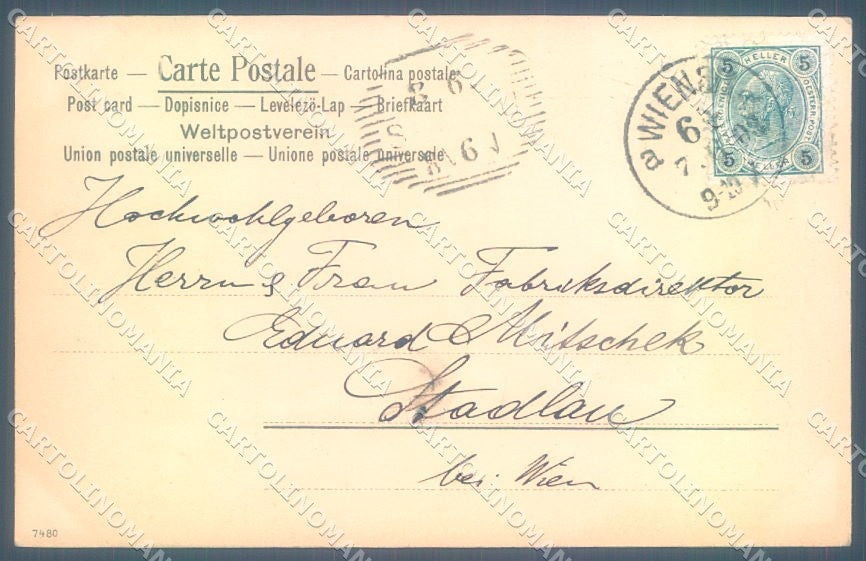 Postkarte — Carte Postale — Cartolina postale
Post card — Dopisnice — Levelezö-Lap — Briefkaart
Weltpostverein
Union postale universelle — Unione postale universale
WIEN
6
9-10
8 6
6
5 HELLER 5
5 HELLER 5
Hochwohlgeboren
Herrn & Frau Fabriksdirektor
Eduard Mitschek
Stadlau
bei Wien
7480
CARTOLINOMANIA